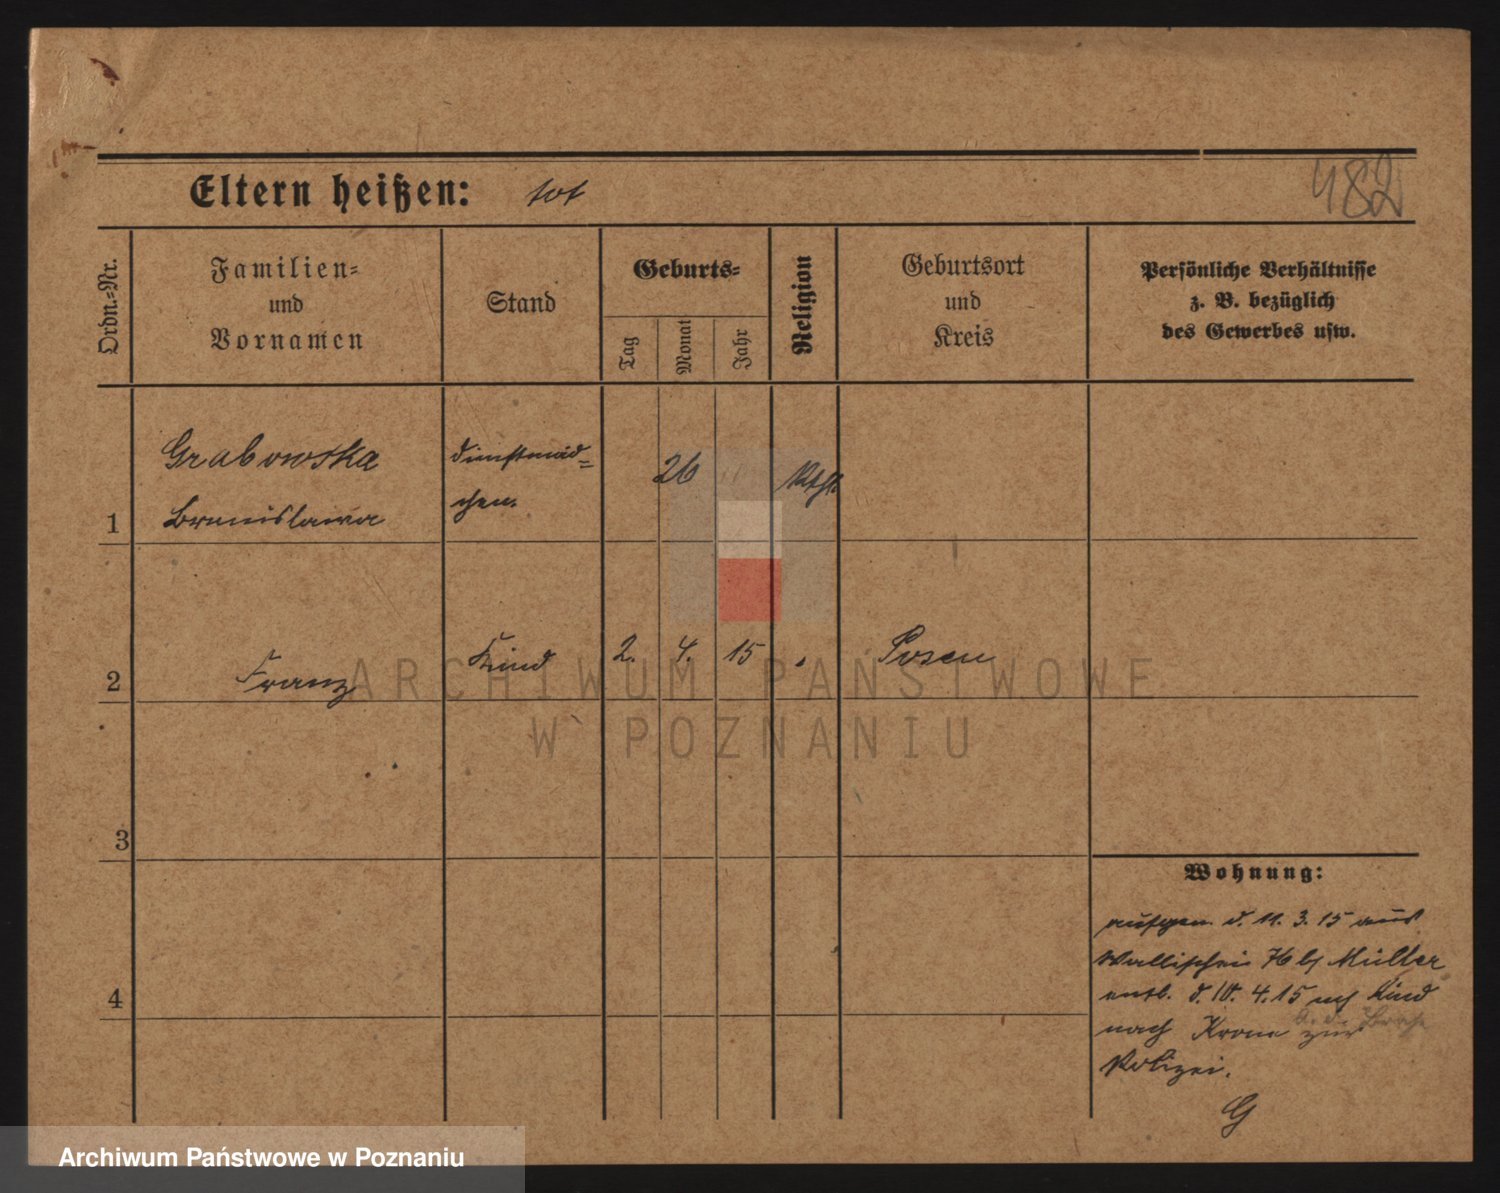 482
Eltern heißen: tot
Ordn.-Nr.
Familien-
und
Vornamen
Stand
Geburts-
Tag
Monat
Jahr
Religion
Geburtsort
und
Kreis
Persönliche Verhältnisse
z. B. bezüglich
des Gewerbes usw.
1
Grabowska
Bronislawa
Dienstmäd=
chen.
26
Kath
2
Franz
Kind
2. 4. 15
Posen
3
4
Wohnung:
aufgen. d. 11. 3. 15 aus
Wallischei 76 b/ Müller
entl. d. 10. 4. 15 Kind
nach Krone zur
a. d. Brahe
Polizei.
G
ARCHIWUM PAŃSTWOWE
W POZNANIU
Archiwum Państwowe w Poznaniu